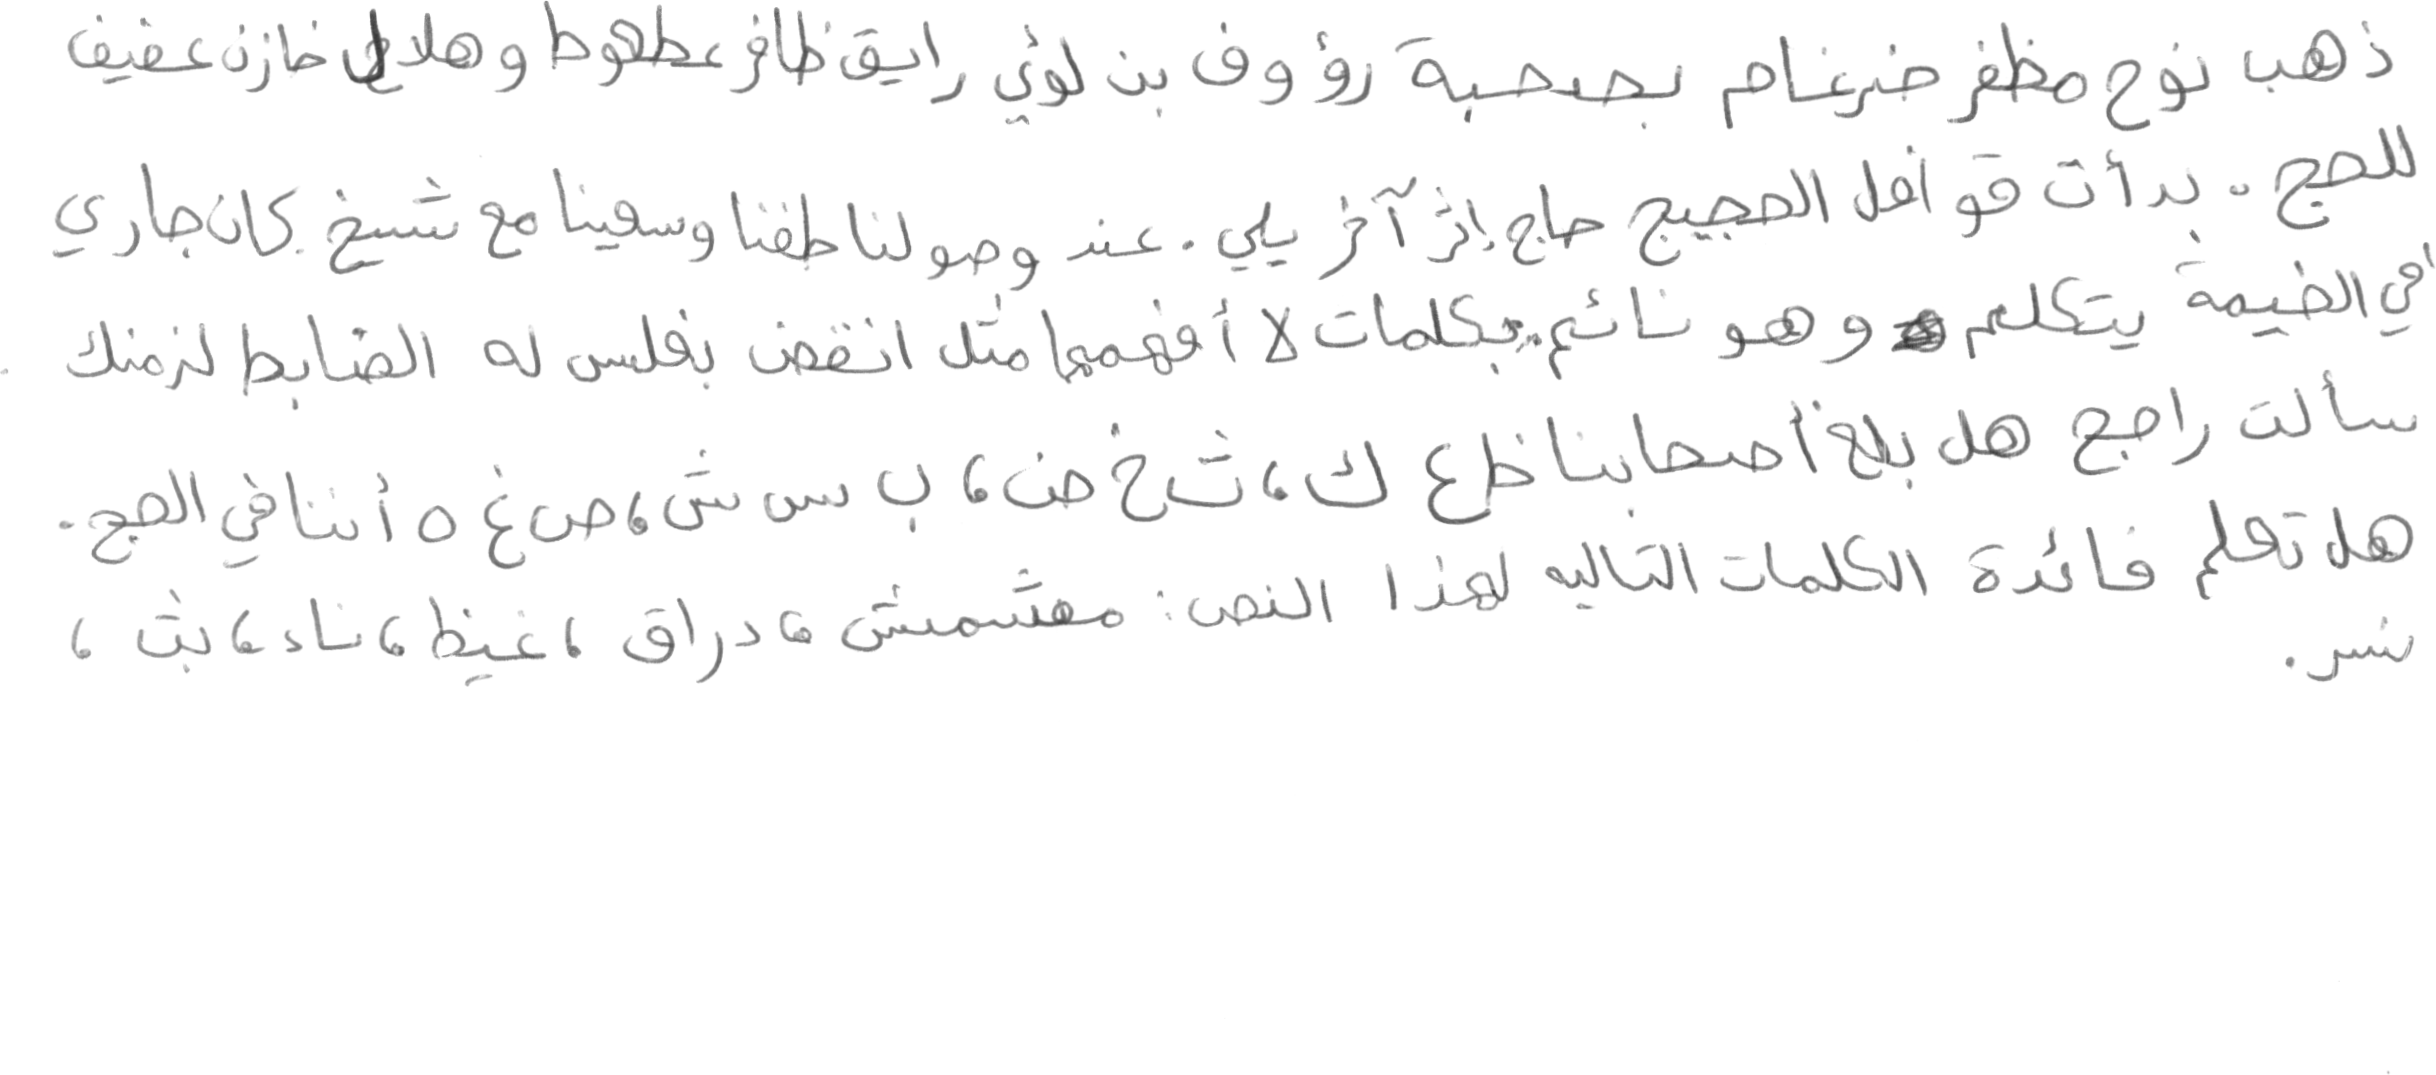 ذهب نوح مظفر ضرغام بصحبة رؤوف بن لؤي رايق ظافر عطعوط وهلال خازن عفيف
للحج. بدأت قوافل الحجيج حاج إثر آخر يلي. عند وصولنا طفنا وسعينا مع شيخ. كان جاري
في الخيمة يتكلم وهو نائم بكلمات لا أفهمها مثل انقض بفلس له الضابط لزمنك
سألت راجح هل بلغ أصحابنا ظ ع ك، ث خ ض، ب س ش، ص غ ه أننا في الحج.
هل تعلم فائدة الكلمات التاليه لهذا النص: مشمش، دراق، غيظ، ناء، بث،
نسر.